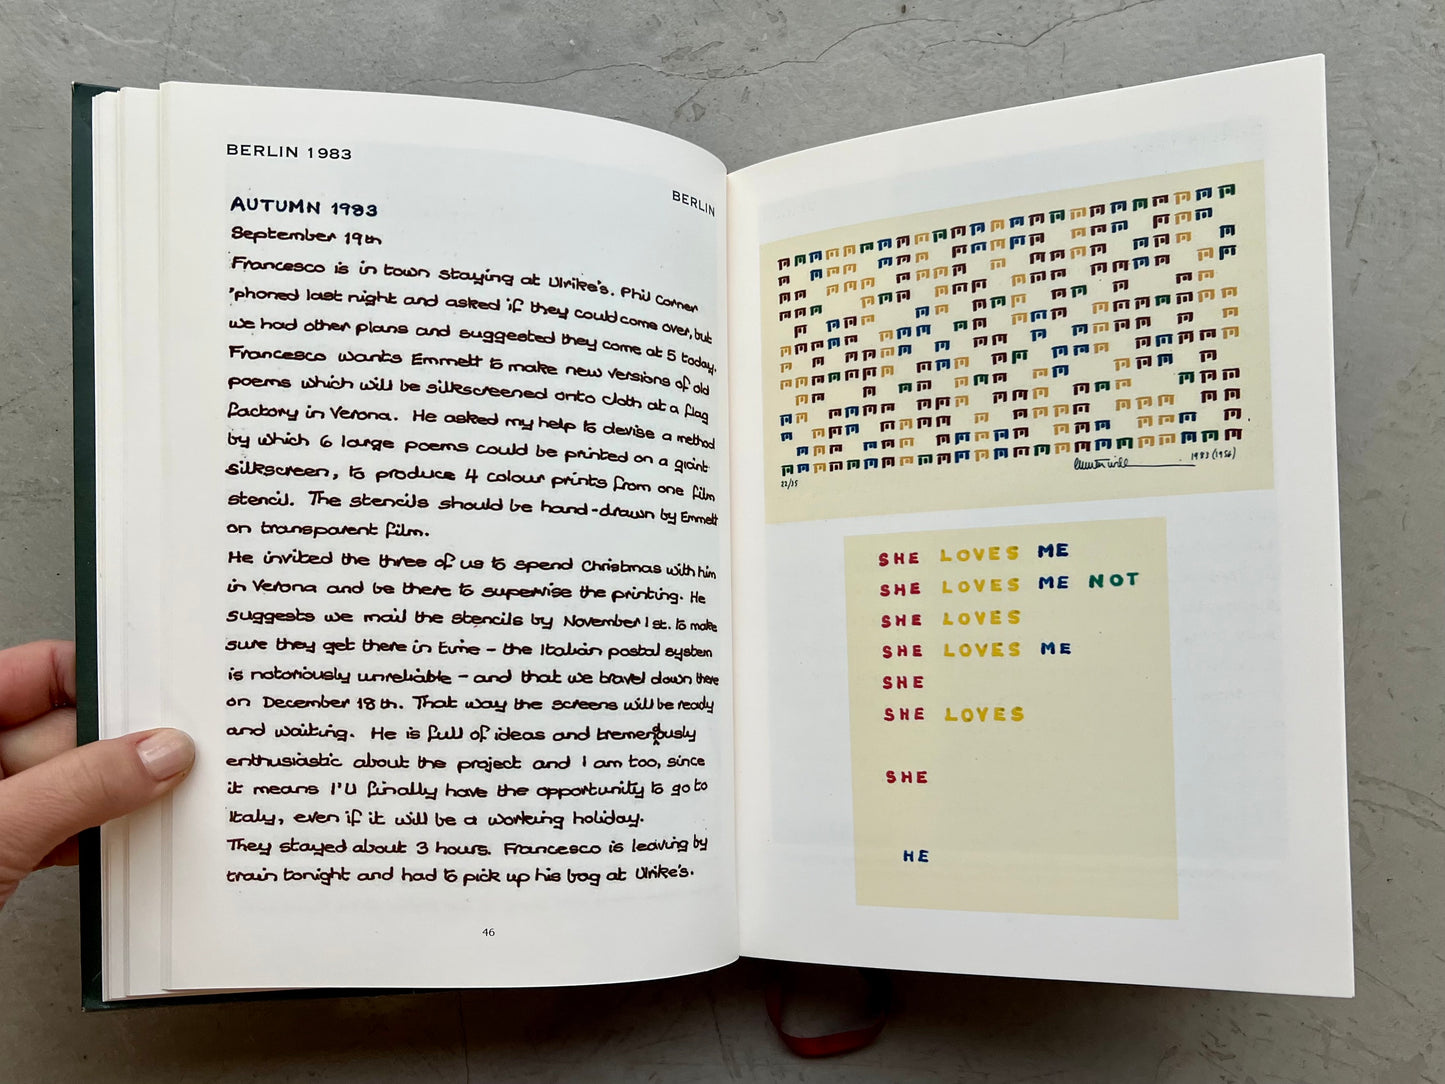 BERLIN 1983
BERLIN
AUTUMN 1983
September 19th
Francesco is in town staying at Ulrike's. Phil Corner
'phoned last night and asked if they could come over, but
we had other plans and suggested they come at 5 today.
Francesco wants Emmett to make new versions of old
poems which will be silkscreened onto cloth at a flag
factory in Verona. He asked my help to devise a method
by which 6 large poems could be printed on a giant
silkscreen, to produce 4 colour prints from one film
stencil. The stencils should be hand-drawn by Emmett
on transparent film.
He invited the three of us to spend Christmas with him
in Verona and be there to supervise the printing. He
suggests we mail the stencils by November 1st. to make
sure they get there in time - the Italian postal system
is notoriously unreliable - and that we travel down there
on December 18th. That way the screens will be ready
and waiting. He is full of ideas and tremendously
enthusiastic about the project and I am too, since
it means I'll finally have the opportunity to go to
Italy, even if it will be a working holiday.
They stayed about 3 hours. Francesco is leaving by
train tonight and had to pick up his bag at Ulrike's.
46
22/35
1983 (1956)
SHE LOVES ME
SHE LOVES ME NOT
SHE LOVES
SHE LOVES ME
SHE
SHE LOVES
SHE
HE